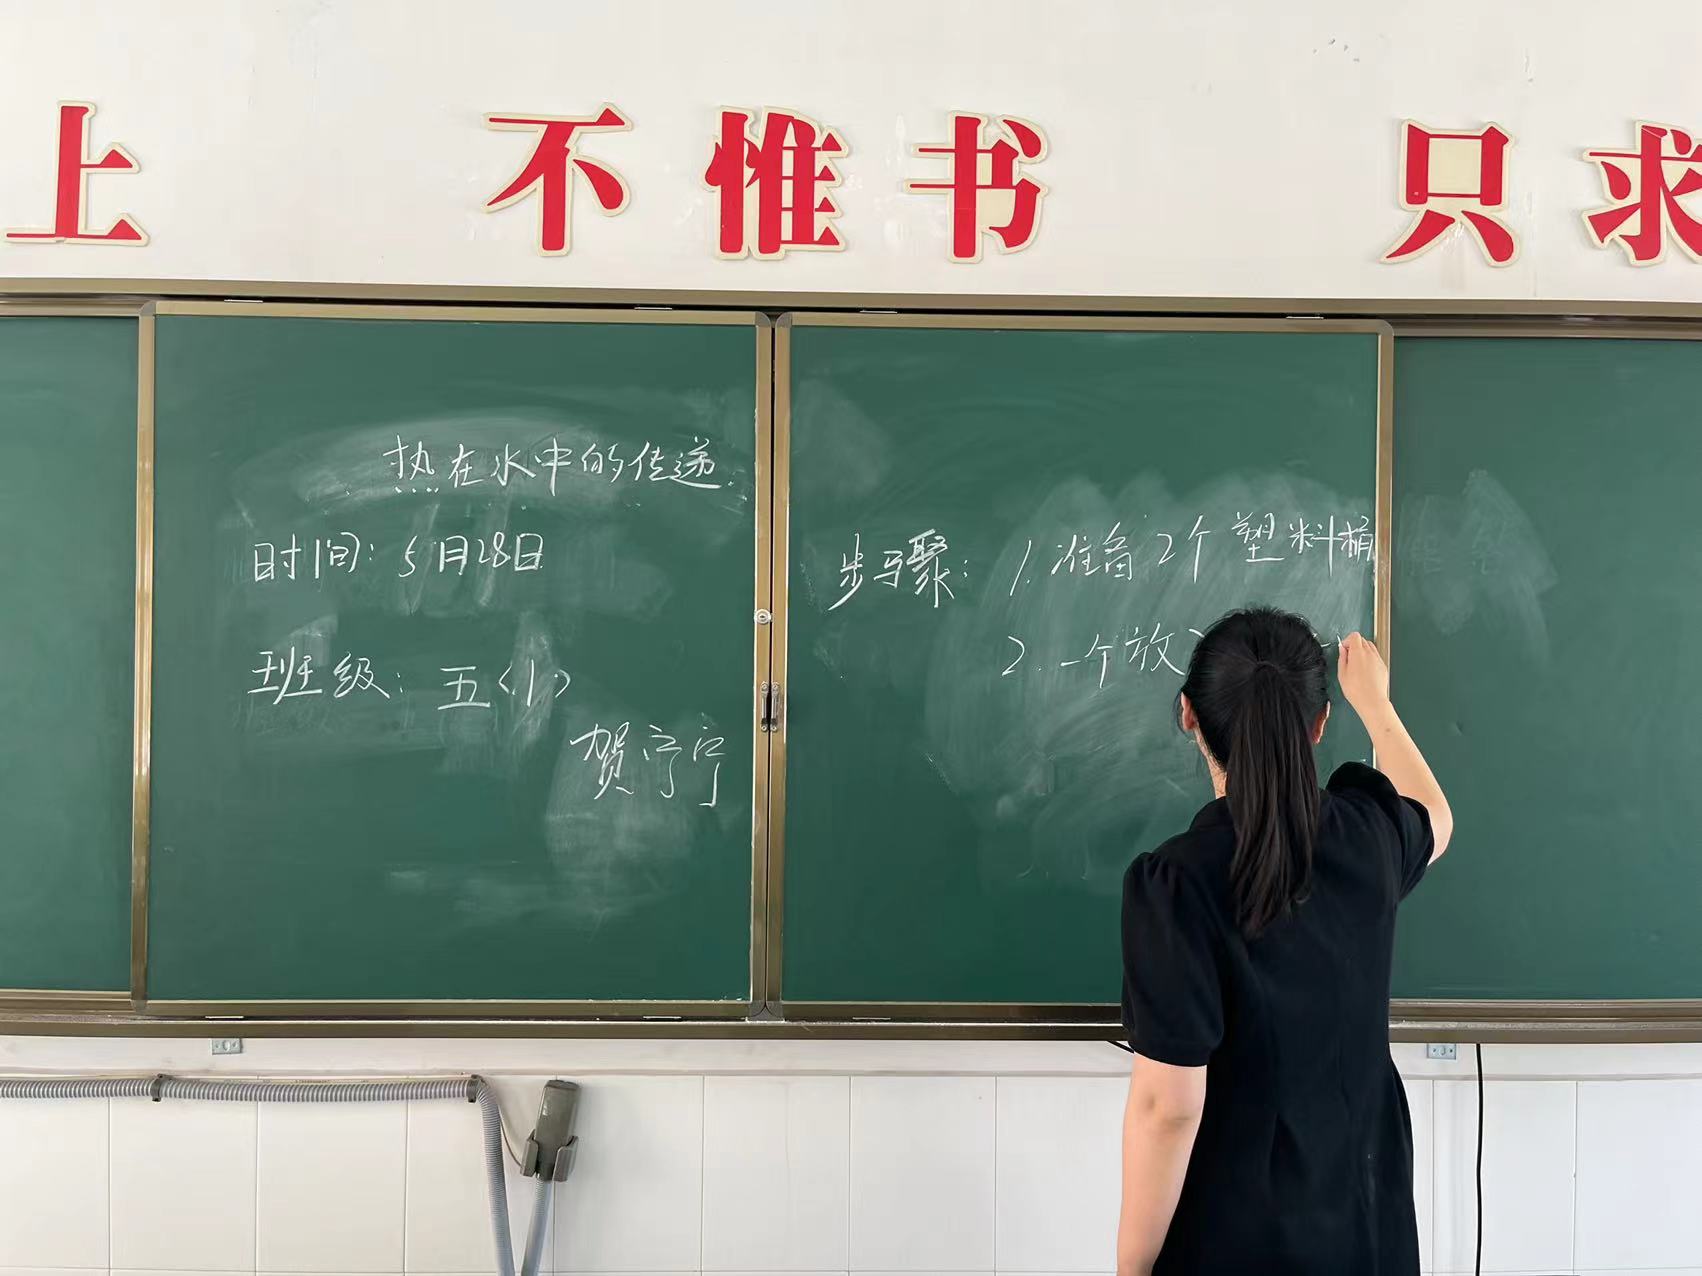 上 不惟书 只求
热在水中的传递
时间: 5月28日
班级: 五<1>
贺宁宁
步骤: 1. 准备2个塑料桶
2. 一个放